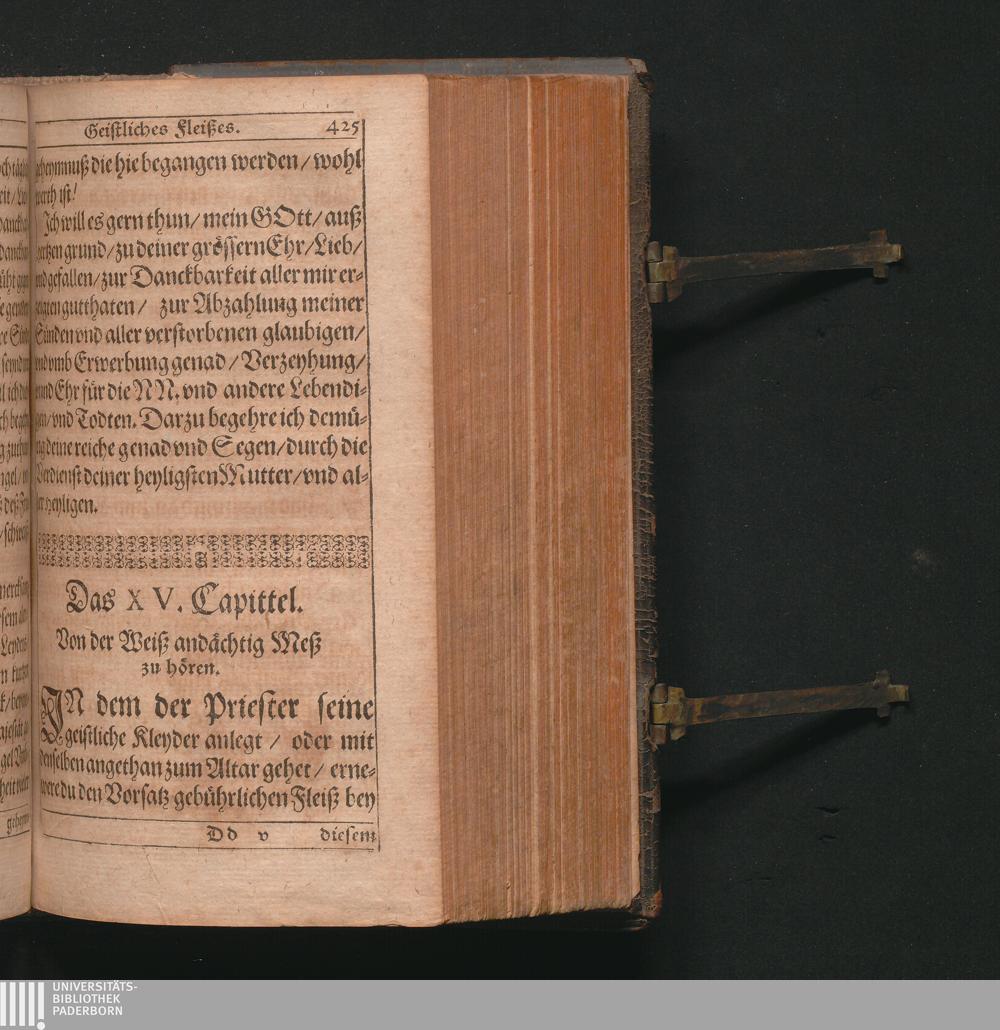 Geistliches Fleißes. 425
geheymnuß die hie begangen werden / wohl
werth ist!
Ich will es gern thun / mein GOtt / auß
hertzen grund / zu deiner grössern Ehr / Lieb /
vnd gefallen / zur Danckbarkeit aller mir er-
zeigten gutthaten / zur Abzahlung meiner
Sünden vnd aller verstorbenen glaubigen /
vnd vmb Erwerbung genad / Verzeyhung /
vnd Ehr für die NN. vnd andere Lebendi-
gen / vnd Todten. Darzu begehre ich demü-
tig deine reiche genad vnd Segen / durch die
Verdienst deiner heyligsten Mutter / vnd al-
ler heyligen.
Das XV. Capittel.
Von der Weiß andächtig Meß
zu hören.
IN dem der Priester seine
geistliche Kleyder anlegt / oder mit
denselben angethan zum Altar gehet / erne-
were du den Vorsatz gebührlichen Fleiß bey
Dd v diesem
UNIVERSITÄTS-
BIBLIOTHEK
PADERBORN